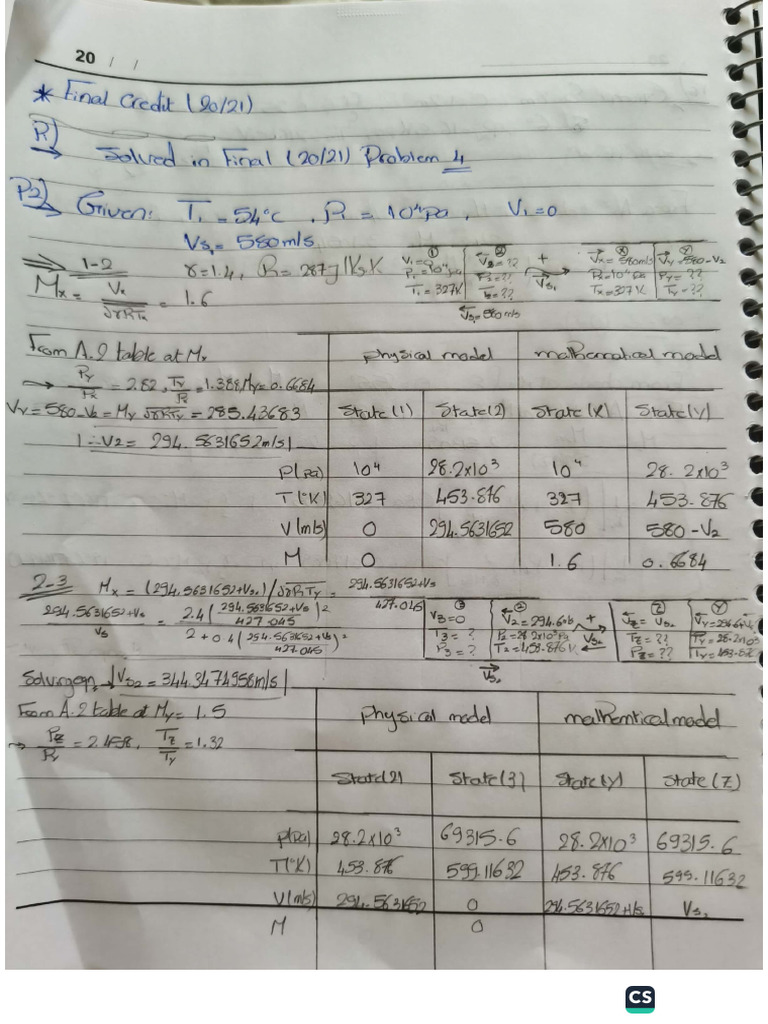 20 / /
* Final Credit (20/21)
P1)
→ Solved in Final (20/21) Problem 4
P2)
→ Given: T₁ = 54°c , P₁ = 10⁴pa , V₁ = 0
Vs₁ = 580 m/s
1-2 γ = 1.4 , R = 287 J/Kg.K
Mx = Vx / √γRTx = 1.6
① V₁ = 0 P₁ = 10⁴pa T₁ = 327K
② V₂ = ?? P₂ = ?? T₂ = ??
Vs₁ = 580 m/s
+ Vs₁
Ⓧ Vx = 580m/s Px = 10⁴pa Tx = 327K
Ⓨ Vy = 580 - V₂ Py = ?? Ty = ??
From A.2 table at Mx
→ Py/Px = 2.82 , Ty/Tx = 1.388, My = 0.6684
Vy = 580 - V₂ = My √γRTy = 285.43683
∴ V2 = 294.5631652 m/s
physical model mathematical model
State(1) State(2) State(X) State(Y)
P(Pa) 10⁴ 28.2x10³ 10⁴ 28.2x10³
T(°K) 327 453.876 327 453.876
V(m/s) 0 294.5631652 580 580 - V₂
M 0 1.6 0.6684
2-3 Mx = (294.5631652 + Vs₂) / √γRTy = 294.5631652 + Vs / 427.045
294.5631652 + Vs / Vs = 2.4 (294.5631652 + Vs / 427.045)² / 2 + 0.4 (294.5631652 + Vs / 427.045)²
③ V3 = 0 T3 = ? P3 = ?
② V₂ = 294.6 P₂ = 28.2x10³Pa T₂ = 453.876 K
Vs₂
+ Vs₂
Ⓩ Vz = Vs₂ Tz = ?? Pz = ??
Ⓨ
Ty = 453.876
Solving eqn → Vs2 = 344.3474958 m/s
From A.2 table at My = 1.5
→ Pz/Py = 2.458 , Tz/Ty = 1.32
physical model mathemtical model
State(2) State(3) State(y) State(Z)
P(Pa) 28.2x10³ 69315.6 28.2x10³ 69315.6
T(°K) 453.876 599.11632 453.876 599.11632
V(m/s) 294.5631652 0 294.5631652+Vs Vs₂
M 0
CS